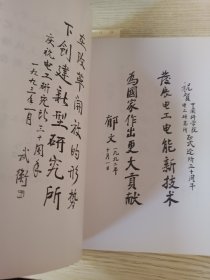 祝贺
中国科学院
电工研究所正式论所三十周年
发展电工电能新技术
为国家作出更大贡献
郁文
一九九三年
一月一日
在改革开放的形势
下创建新型研究所
庆祝电工研究所三十周年
一九九三年一月
武衡